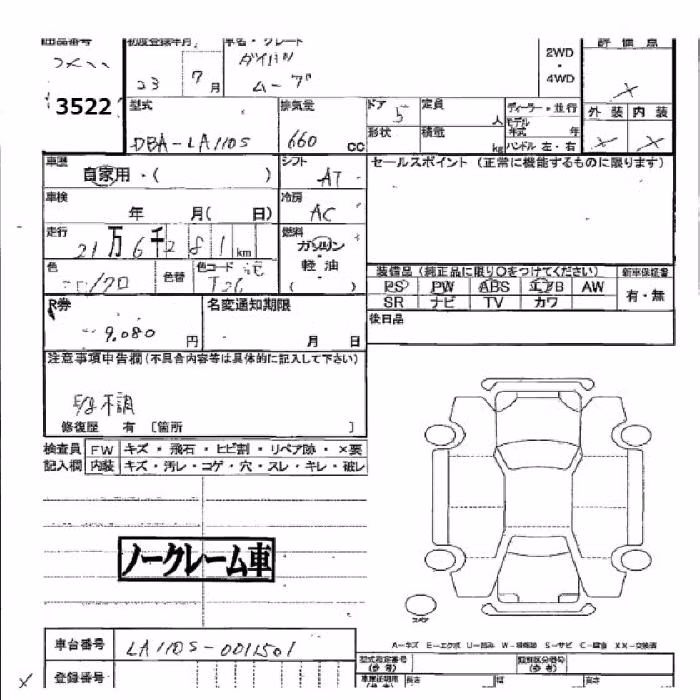 出品番号 初度登録年月 車名・グレード 2WD・4WD 評価点
23 7月 ダイハツ ムーブ ×
3522 型式 排気量 ドア 5 定員 人 ディーラー・並行 外装 内装
DBA-LA110S 660 cc 形状 積載 kg モデル 年式 年 ハンドル 左・右 × ×
車歴 自家用・( ) シフト AT セールスポイント (正常に機能するものに限ります)
車検 年 月( 日) 冷房 AC
走行 21万6千281km 燃料 ガソリン
軽油
( )
色 色替 色コード T26 装備品(純正品に限り○をつけてください) 新車保証書
PS PW ABS エアB AW 有・無
SR ナビ TV カワ
R券 9,080円 名変通知期限 月 日 後日品
注意事項申告欄(不具合内容等は具体的に記入して下さい)
不調
修復歴 有 [箇所 ]
検査員 FW キズ・飛石・ヒビ割・リペア跡・×要
記入欄 内装 キズ・汚レ・コゲ・穴・スレ・キレ・破レ
ノークレーム車
スペア
A-キズ E-エクボ U-凹み W-補修跡 S-サビ C-腐食 XX-交換済
車台番号 LA110S-0011501
型式指定番号 類別区分番号
登録番号 長さ 幅 高さ